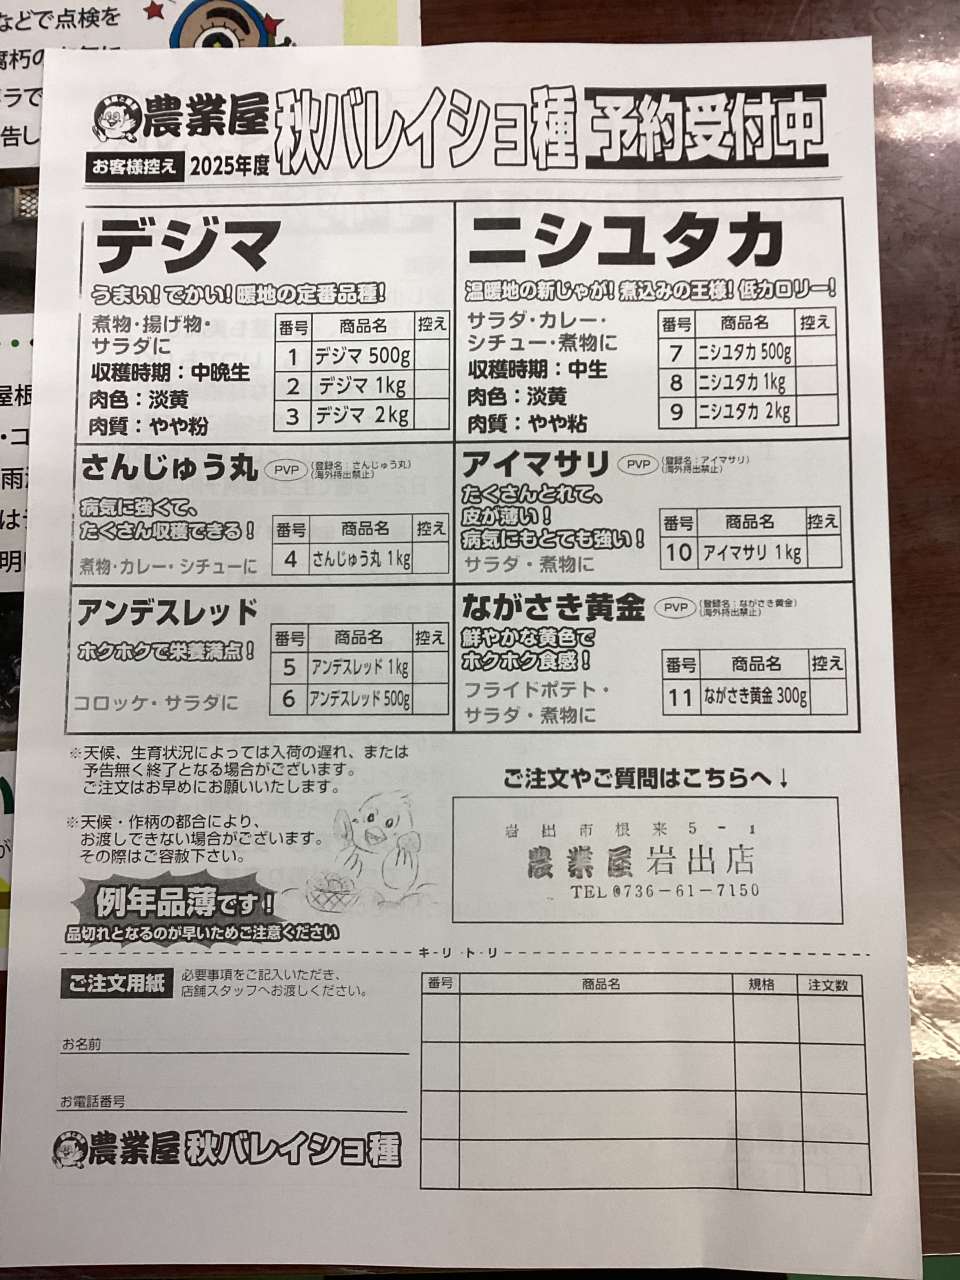 などで点検を
農業屋 秋バレイショ種 予約受付中
お客様控え 2025年度
デジマ
うまい!でかい!暖地の定番品種!
煮物・揚げ物・
サラダに
収穫時期:中晩生
肉色:淡黄
肉質:やや粉
番号 商品名 控え
1 デジマ 500g
2 デジマ 1kg
3 デジマ 2kg
ニシユタカ
温暖地の新じゃが!煮込みの王様!低カロリー!
サラダ・カレー・
シチュー・煮物に
収穫時期:中生
肉色:淡黄
肉質:やや粘
番号 商品名 控え
7 ニシユタカ 500g
8 ニシユタカ 1kg
9 ニシユタカ 2kg
さんじゅう丸 PVP (登録名:さんじゅう丸)
(海外持出禁止)
病気に強くて、
たくさん収穫できる!
煮物・カレー・シチューに
番号 商品名 控え
4 さんじゅう丸 1kg
アイマサリ PVP (登録名:アイマサリ)
(海外持出禁止)
たくさんとれて、
皮が薄い!
病気にもとても強い!
サラダ・煮物に
番号 商品名 控え
10 アイマサリ 1kg
アンデスレッド
ホクホクで栄養満点!
コロッケ・サラダに
番号 商品名 控え
5 アンデスレッド 1kg
6 アンデスレッド 500g
ながさき黄金 PVP (登録名:ながさき黄金)
(海外持出禁止)
鮮やかな黄色で
ホクホク食感!
フライドポテト・
サラダ・煮物に
番号 商品名 控え
11 ながさき黄金 300g
※天候、生育状況によっては入荷の遅れ、または
予告無く終了となる場合がございます。
ご注文はお早めにお願いいたします。
※天候・作柄の都合により、
お渡しできない場合がございます。
その際はご容赦下さい。
例年品薄です!
品切れとなるのが早いためご注意ください
ご注文やご質問はこちらへ↓
岩出市根来5-1
農業屋 岩出店
TEL 0736-61-7150
キリトリ
ご注文用紙 必要事項をご記入いただき、
店舗スタッフへお渡しください。
お名前
お電話番号
農業屋 秋バレイショ種
番号 商品名 規格 注文数